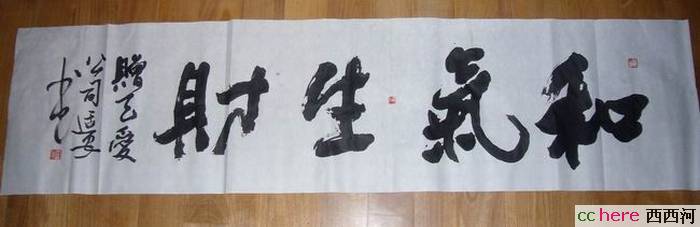 和氣生財
贈天愛
公司
cchere 西西河